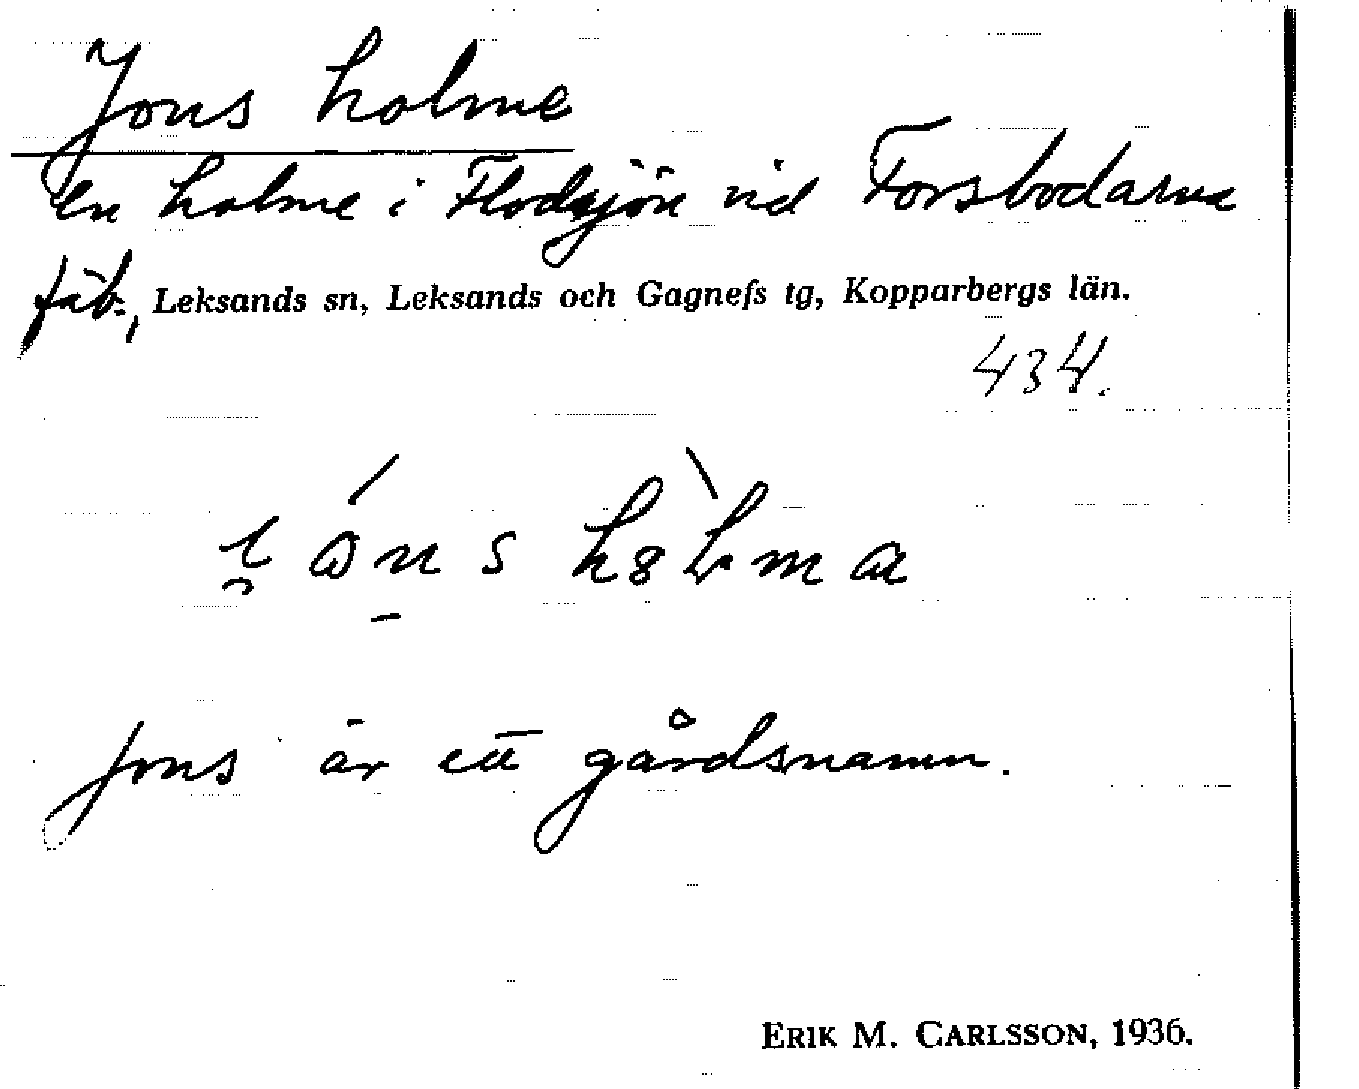 Jons holme
En holme i Flodsjön vid Forsbodarna
fäb., Leksands sn, Leksands och Gagnefs tg, Kopparbergs län.
434.
Jons är ett gårdsnamn.
ERIK M. CARLSSON, 1936.